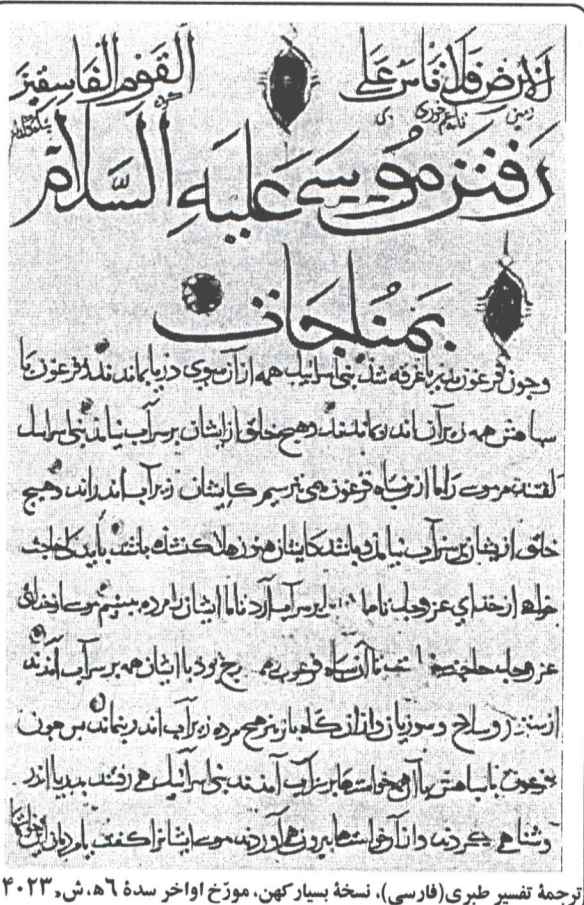 الارض فلا تاس علی القوم الفاسقین
زمین
رفتن موسی علیه السلام
بمناجات
و چون فرعون بدریا غرقه شد بنی اسرائیل همه از آن سوی دریا بماندند و فرعون با
سپاهش همه زیر آب اندر بماندند و هیچ خلق از ایشان بر سر آب نیامد بنی اسرایل
گفتند مر موسی را ما از سپاه فرعون همی ترسیم کایشان زیر آب اندراند و هیچ
خلق از یشان بر سر آب نیامد و باشد کایشان هنوز هلاک نشده باشند باید کی حاجت
خواهی از خدای عز و جل تا ما بر سر آب آرد تا ما ایشان را مرده ببینیم موسی از خدای
عز و جل تا آن سپاه فرعون با ایشان همه بر سر آب آمدند
از ستور و سلاح و هیچ مرده زیر آب اندر بنماند پس چون
فرعون با سپاهش با آن خواستها بر سر آب آمدند بنی اسرائیل همی رفتند بدریا اندر
و شنا همی کردند و از آن خواستها بیرون همی آوردند موسی ایشانرا گفت یا مردمان این
ترجمهٔ تفسیر طبری(فارسی)، نسخهٔ بسیار کهن، مورّخ اواخر سدهٔ ٦ه‍، ش. ۴۰۲۳